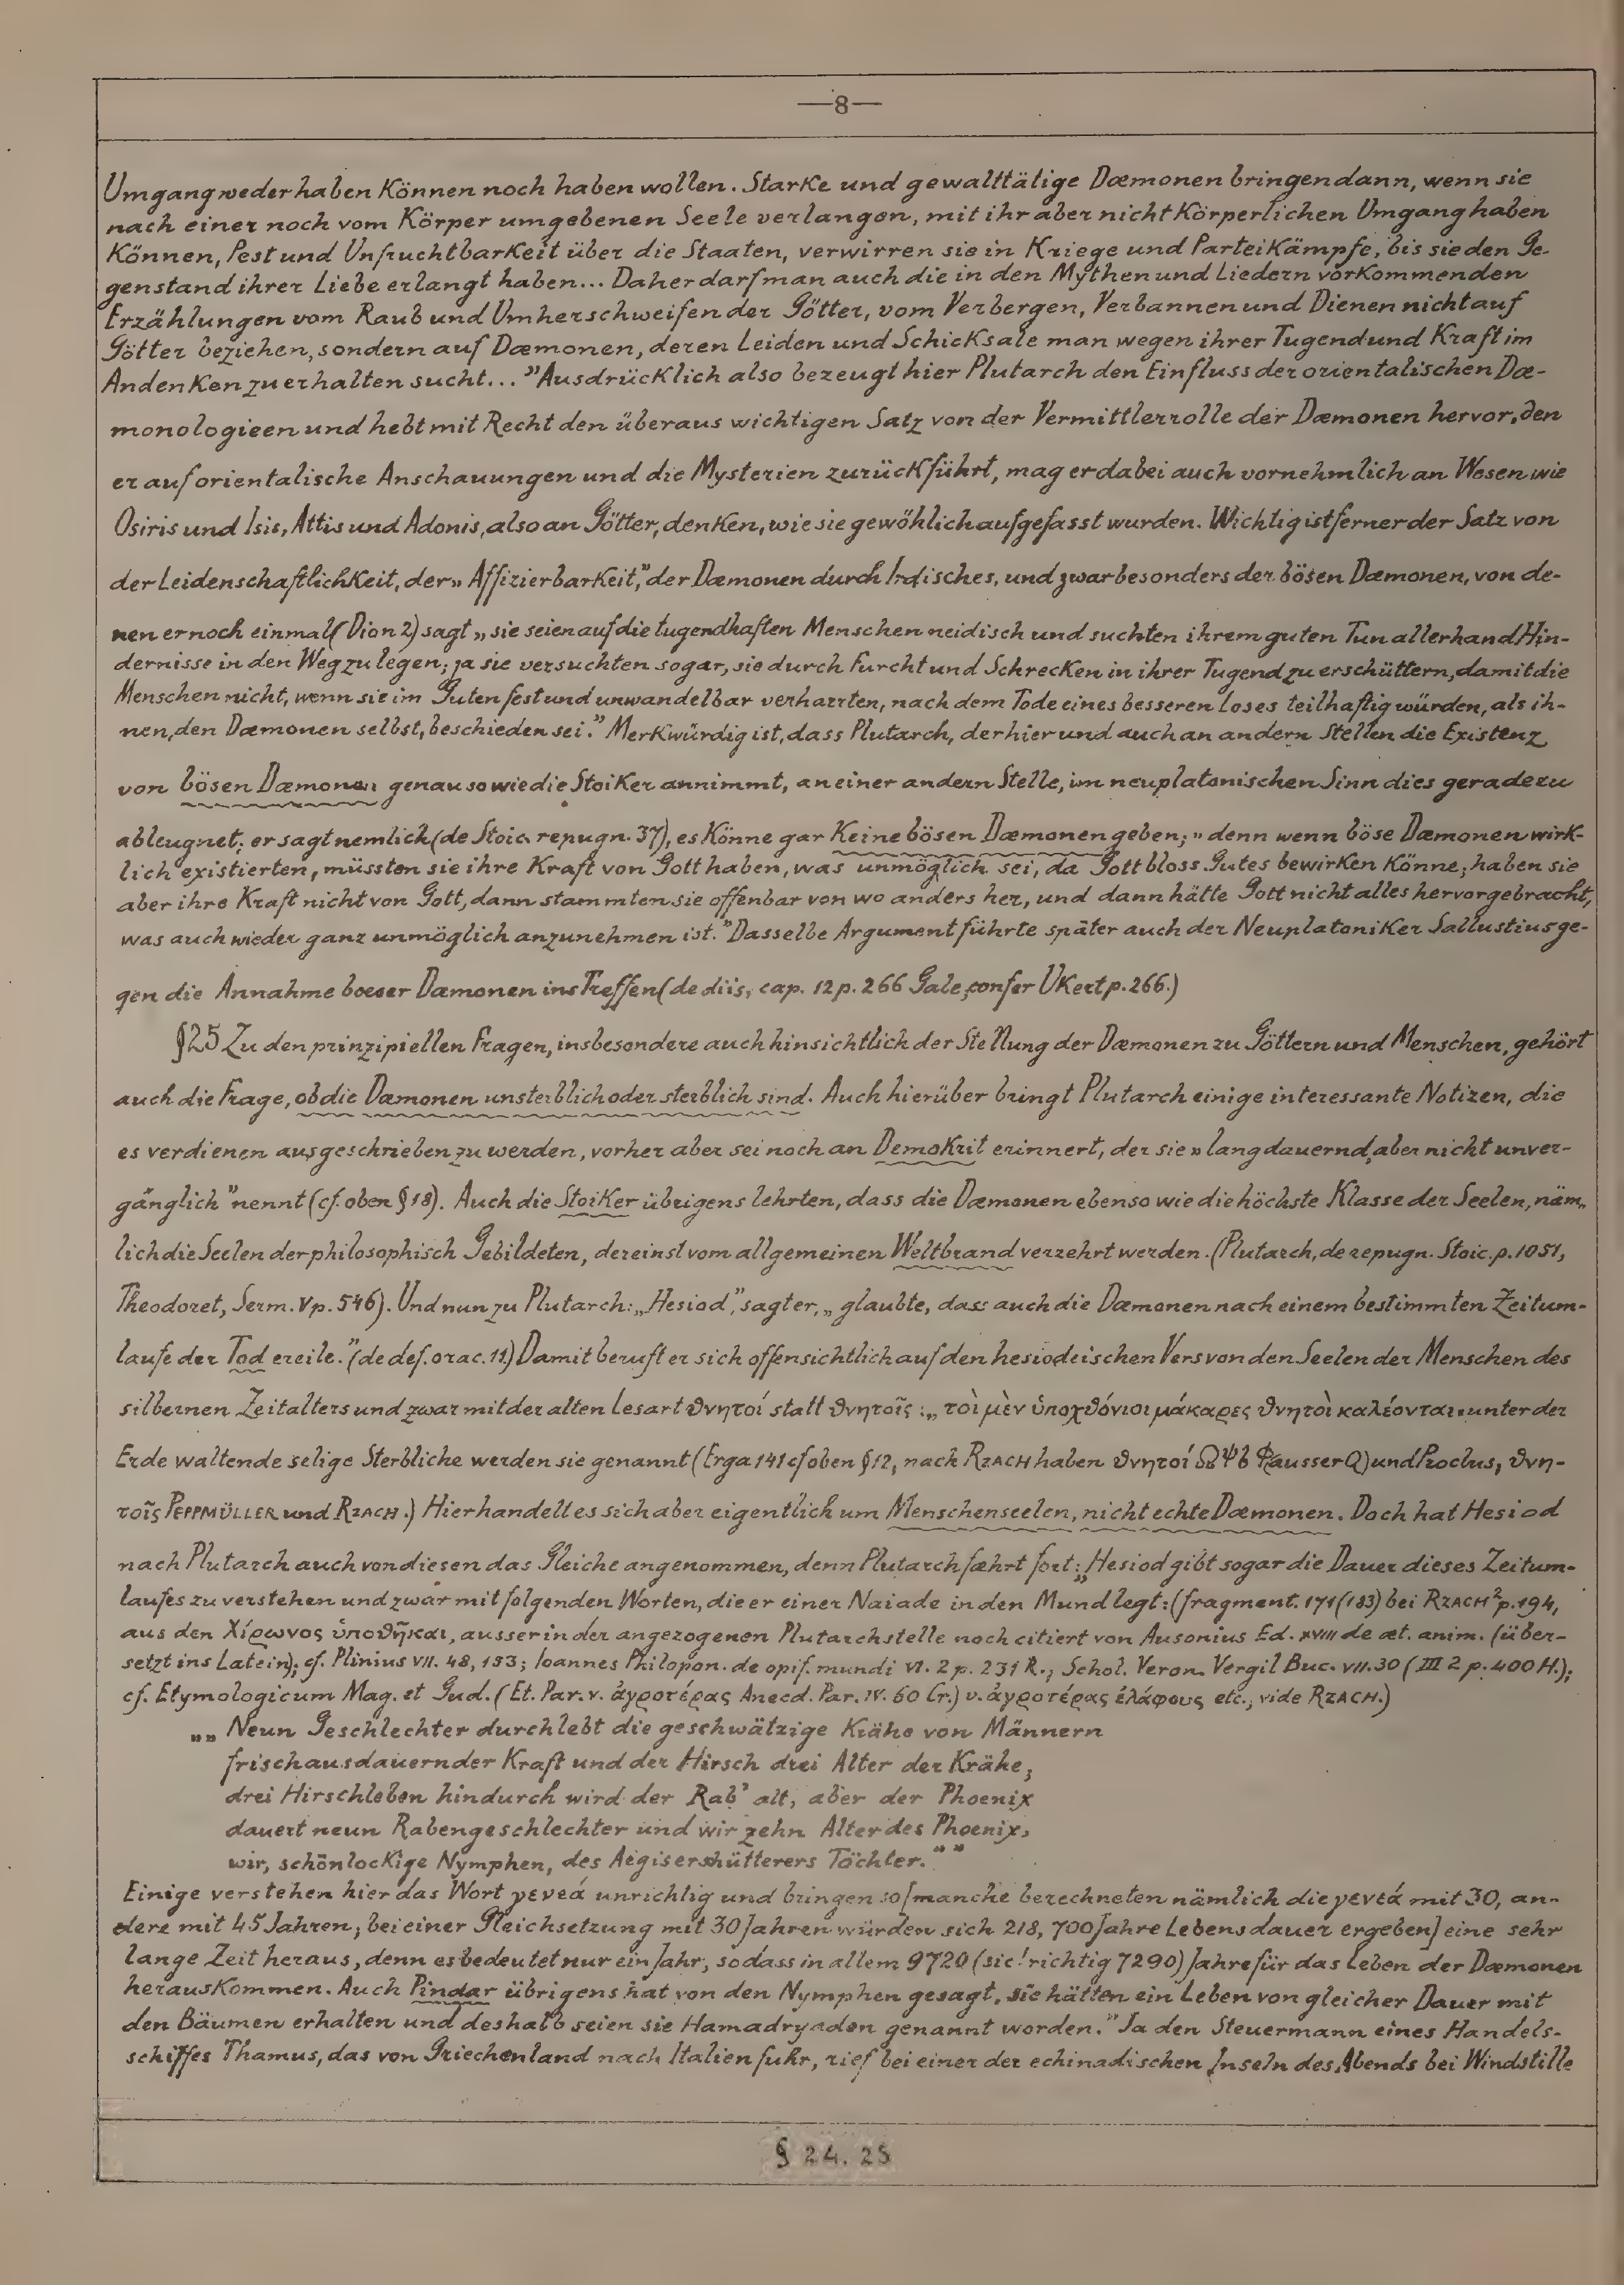 —8—
Umgang weder haben können noch haben wollen. Starke und gewalttätige Dæmonen bringen dann, wenn sie
nach einer noch vom Körper umgebenen Seele verlangen, mit ihr aber nicht körperlichen Umgang haben
können, Pest und Unfruchtbarkeit über die Staaten, verwirren sie in Kriege und Parteikämpfe, bis sie den Ge-
genstand ihrer Liebe erlangt haben... Daher darf man auch die in den Mythen und Liedern vorkommenden
Erzählungen vom Raub und Umherschweifen der Götter, vom Verbergen, Verbannen und Dienen nicht auf
Götter beziehen, sondern auf Dæmonen, deren Leiden und Schicksale man wegen ihrer Tugend und Kraft im
Andenken zu erhalten sucht..." Ausdrücklich also bezeugt hier Plutarch den Einfluss der orientalischen Dæ-
monologieen und hebt mit Recht den überaus wichtigen Satz von der Vermittlerrolle der Dæmonen hervor, den
er auf orientalische Anschauungen und die Mysterien zurückführt, mag er dabei auch vornehmlich an Wesen wie
Osiris und Isis, Attis und Adonis, also an Götter, denken, wie sie gewöhlich aufgefasst wurden. Wichtig ist ferner der Satz von
der Leidenschaftlichkeit, der „Affizierbarkeit," der Dæmonen durch Irdisches, und zwar besonders der bösen Dæmonen, von de-
nen er noch einmal (Dion 2) sagt „sie seien auf die tugendhaften Menschen neidisch und suchten ihrem guten Tun allerhand Hin-
dernisse in den Weg zu legen; ja sie versuchten sogar, sie durch Furcht und Schrecken in ihrer Tugend zu erschüttern, damit die
Menschen nicht, wenn sie im Guten fest und unwandelbar verharrten, nach dem Tode eines besseren Loses teilhaftig würden, als ih-
nen, den Dæmonen selbst, beschieden sei." Merkwürdig ist, dass Plutarch, der hier und auch an andern Stellen die Existenz
von bösen Dæmonen genau so wie die Stoiker annimmt, an einer andern Stelle, im neuplatonischen Sinn dies geradezu
ableugnet; er sagt nemlich (de Stoic. repugn. 37), es könne gar keine bösen Dæmonen geben; „denn wenn böse Dæmonen wirk-
lich existierten, müssten sie ihre Kraft von Gott haben, was unmöglich sei, da Gott bloss Gutes bewirken könne; haben sie
aber ihre Kraft nicht von Gott, dann stammten sie offenbar von wo anders her, und dann hätte Gott nicht alles hervorgebracht,
was auch wieder ganz unmöglich anzunehmen ist." Dasselbe Argument führte später auch der Neuplatoniker Sallustius ge-
gen die Annahme boeser Dæmonen ins Treffen (de diis, cap. 12 p. 266 Gale, confer Ukert p. 266.)
§25 Zu den prinzipiellen Fragen, insbesondere auch hinsichtlich der Stellung der Dæmonen zu Göttern und Menschen, gehört
auch die Frage, ob die Dæmonen unsterblich oder sterblich sind. Auch hierüber bringt Plutarch einige interessante Notizen, die
es verdienen ausgeschrieben zu werden, vorher aber sei noch an Demokrit erinnert, der sie „langdauernd, aber nicht unver-
gänglich" nennt (cf. oben §18). Auch die Stoiker übrigens lehrten, dass die Dæmonen ebenso wie die höchste Klasse der Seelen, näm-
lich die Seelen der philosophisch Gebildeten, dereinst vom allgemeinen Weltbrand verzehrt werden. (Plutarch, de repugn. Stoic. p. 1051,
Theodoret, Serm. V p. 546). Und nun zu Plutarch: „Hesiod," sagt er, „glaubte, dass auch die Dæmonen nach einem bestimmten Zeitum-
laufe der Tod ereile." (de def. orac. 11) Damit beruft er sich offensichtlich auf den hesiodeischen Vers von den Seelen der Menschen des
silbernen Zeitalters und zwar mit der alten Lesart ϑνητοί statt ϑνητοῖς: „τοὶ μὲν ὑποχϑόνιοι μάκαρες ϑνητοὶ καλέονται" unter der
Erde waltende selige Sterbliche werden sie genannt (Erga 141 cf oben §12, nach RZACH haben ϑνητοί Ψb (ausser Q) und Proclus, ϑνη-
τοῖς PEPPMÜLLER und RZACH.) Hier handelt es sich aber eigentlich um Menschenseelen, nicht echte Dæmonen. Doch hat Hesiod
nach Plutarch auch von diesen das Gleiche angenommen, denn Plutarch fæhrt fort: „Hesiod gibt sogar die Dauer dieses Zeitum-
laufes zu verstehen und zwar mit folgenden Worten, die er einer Naiade in den Mund legt: (fragment. 171 (183) bei RZACH² p. 194,
aus den Χίρωνος ὑποϑῆκαι, ausser in der angezogenen Plutarchstelle noch citiert von Ausonius Ed. XVIII de æt. anim. (über-
setzt ins Latein); cf. Plinius VII. 48, 153; Ioannes Philopon. de opif. mundi VI. 2 p. 231 R., Schol. Veron. Vergil Buc. VII. 30 (III 2 p. 400 H.);
cf. Etymologicum Mag. et Gud. (Et. Par. v. ἀγροτέρας Anecd. Par. IV. 60 Cr.) v. ἀγροτέρας ἐλάφους etc., vide RZACH.)
„„Neun Geschlechter durchlebt die geschwätzige Krähe von Männern
frischausdauernder Kraft und der Hirsch drei Alter der Krähe;
drei Hirschleben hindurch wird der Rab' alt, aber der Phoenix
dauert neun Rabengeschlechter und wir zehn Alter des Phoenix,
wir, schönlockige Nymphen, des Aegiserschütterers Töchter.""
Einige verstehen hier das Wort γενεά unrichtig und bringen so [manche berechneten nämlich die γενεά mit 30, an-
dere mit 45 Jahren; bei einer Gleichsetzung mit 30 Jahren würden sich 218,700 Jahre Lebensdauer ergeben] eine sehr
lange Zeit heraus, denn es bedeutet nur ein Jahr, sodass in allem 9720 (sic! richtig 7290) Jahre für das Leben der Dæmonen
herauskommen. Auch Pindar übrigens hat von den Nymphen gesagt, sie hätten ein Leben von gleicher Dauer mit
den Bäumen erhalten und deshalb seien sie Hamadryaden genannt worden." Ja den Steuermann eines Handels-
schiffes Thamus, das von Griechenland nach Italien fuhr, rief bei einer der echinadischen Inseln des Abends bei Windstille
§ 24. 25